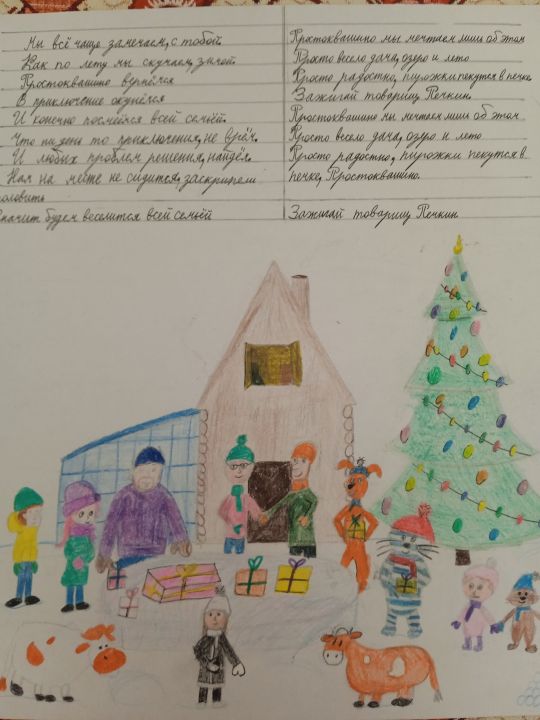 Мы всё чаще замечаем, с тобой
Как по лету мы скучаем, зимой
Простоквашино вернёмся
В приключение окунёмся
И конечно посмеёмся всей семьёй.
Что ни день то приключения, не врём.
И любых проблем решения, найдём.
Нам на месте не сидится, заскрипели
половицы
Значит будем веселится всей семьёй
Простоквашино мы мечтаем лишь об этом
Просто весело дача, озеро и лето
Просто радостно, пирожки пекутся в печке
Зажигай товарищ Печкин.
Простоквашино мы мечтаем лишь об этом
Просто весело дача, озеро и лето
Просто радостно, пирожки пекутся в
печке, Простоквашино.
Зажигай товарищ Печкин